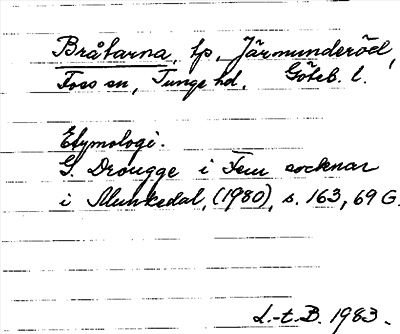 Bråtarna, tp, Järmunderöd,
Foss sn, Tunge hd. Göteb. l.
Etymologi.
G. Drougge i Fem socknar
i Munkedal, (1980), s. 163, 69 G.
L.-t.B. 1983.